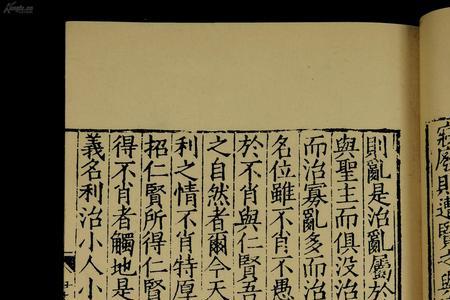 則遭賢之與
則亂是治亂屬於
與聖主而俱沒治
而治寡亂多而治
名位雖不肖不愚
於不肖與仁賢吾
之自然者爾今天
利之情不肖特厚
招仁賢所得仁賢
得不肖者觸地是
義名利治小人小